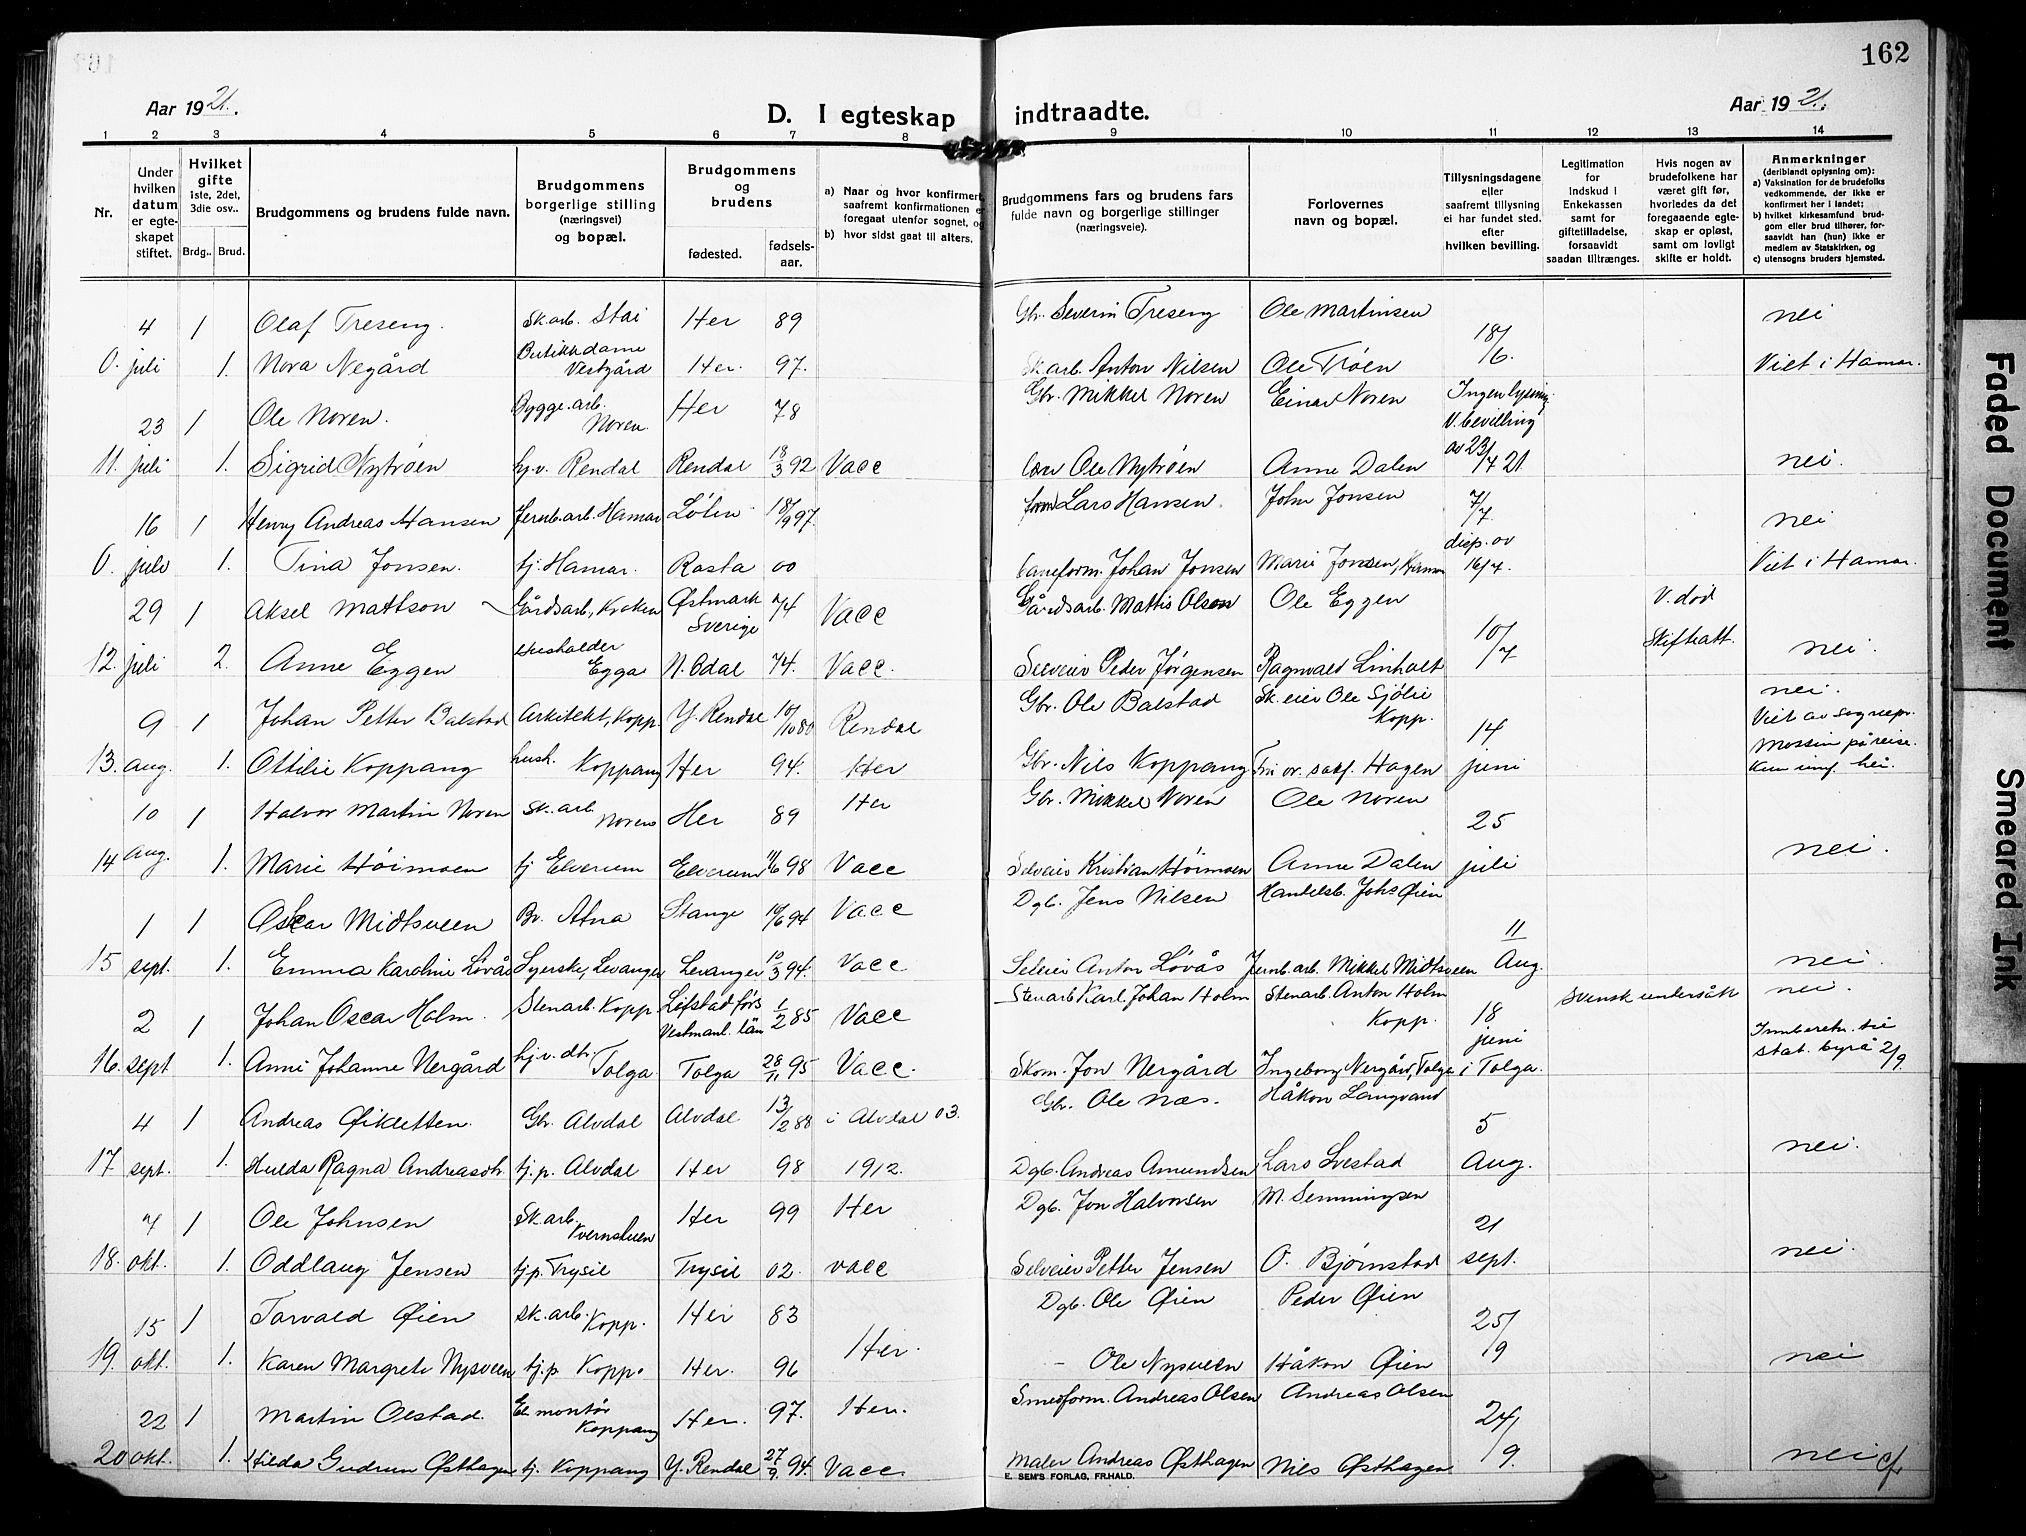 162
Aar 1921.
D. I egteskap indtraadte.
Aar 1921.
1 2 3 4 5 6 7 8 9 10 11 12 13 14
Nr.
Under hvilken datum er egteskapet stiftet.
Hvilket gifte iste, 2det, 3die osv..
Brdg.. Brud.
Brudgommens og brudens fulde navn.
Brudgommens borgerlige stilling (næringsvei) og bopæl.
Brudgommens og brudens
fødested. fødselsaar.
a) Naar og hvor konfirmert, saafremt konfirmationen
foregaat utenfor sognet, og
b) hvor sidst gaat til alters.
Brudgommens fars og brudens fars fulde navn og borgerlige stillinger (næringsveie).
Forlovernes navn og bopæl.
Tillysningsdagene eller saafremt tillysning ei har fundet sted. efter hvilken bevilling.
Legitimation for indskud i Enkekassen samt for giftetilladelse, forsaavidt saadan tiltrænges.
Hvis nogen av brudefolkene har været gift før, hvorledes da det foregaaende egteskap er opløst, samt om lovligt skifte er holdt.
Anmerkninger (deriblandt oplysning om):
a) Vaksination for de brudefolks vedkommende, der ikke er konfirmert her i landet;
b) hvilket kirkesamfund brudgom eller brud tilhører, forsaavidt han (hun) ikke er medlem av Statskirken, og
c) utensogns bruders hjemsted.
4 1 Olaf Treseng. Sk.arb. Stai Her 89 Gbr. Severin Treseng Ole Martinsen 18/6. nei
0. juli 1. Nora Negård Butikkdame Vestgård Her. 97. Sk.arb. Anton Nilsen Ole Trøen Viet i Hamar.
23 1 Ole Noren. Bygge.arb. Noren. Her 78 Gbr. Mikkel Noren Einar Noren Ingen lysning V. bevilling av 23/7 21
11. juli 1. Sigrid Nytrøen hj.v. Rendal Rendal 18/3 92 Vacc Ole Nytrøen Anne Dalen nei.
16 1 Henry Andreas Hansen Jernb.arb. Hamar Løten 18/9 97. Lars Hansen. John Jonsen 7/7. nei
0. juli 1. Tina Jonsen. tj. Hamar. Rasta 00 baneform. Johan Jonsen Marie Jonsen, disp. av 16/7. Viet i Hamar.
29 1 Aksel Mattson Gårdsarb, Kroken Østmark Sverige 74 Vacc Gårdsarb. Mattis Olson Ole Eggen 10/7 V. død
12. juli 2. Anne Eggen Husholder Egga N. Odal 74. Vacc. Selveier Peder Jørgensen Ragnvald Linholt Skiftratt. nei.
9 1 Johan Petter Balstad Arkitekt, Kopp. Y. Rendal 10/10 80 Rendal Gbr. Ole Balstad Sk.eier Ole Sjølie Kopp. 14 juni nei. Viet av sognepr. Mossin på reise.
13. aug. 1. Ottilie Koppang hush. Koppang Her 94. Her Gbr. Nils Koppang Hagen
10 1 Halvor Martin Noren Sk.arb. Noren Her 89 Her Gbr. Mikkel Noren Ole Noren 25 juli
14 aug. 1. Marie Høimoen tj Elverum Elverum 11/6 98 Vacc Selveier Kristian Høimoen Anne Dalen nei.
1 1 Oscar Midtsveen Br. Atna Stange 10/6 94 Vacc Dgb. Jens Nilsen Handelsb. Johs Øien 11 Aug.
15 sept. 1. Emma Karoline Løvås Syerske, Levanger Levanger 10/3 94. Vacc Selveier Anton Løvås Jernb.arb. Mikkel Midtsveen nei.
2 1 Johan Oscar Holm. Stenarb. Kopp. Vestmanl. län 1/2 85 Vacc Stenarb. Karl Johan Holm Stenarb. Anton Holm Kopp. 18 juni svensk undersått nei.
16. sept 1. Anni Johanne Nergård hj.v. dtr. Tolga Tolga 28/11 95 Vacc. Skom. Jon Nergård Ingeborg Nergård, Tolga i Tolga. Innberetn. til stat. byrå 2/9
4 1 Andreas Øikletten. Gbr. Alvdal Alvdal 13/2 88 i Alvdal 03. Gbr. Ole Næs. Håkon Langvand 5 Aug.
17 sept. 1. Hulda Ragna Andreasdtr. tj.p. Alvdal Her 98 1912. Dgb. Andreas Amundsen Lars Svestad nei.
7 1 Ole Johnsen Sk.arb. Kvernskuen Her 99 Her Dgb. Jon Halvorsen M. Semmingsen 21 sept.
18. okt. 1. Oddlaug Jensen tj.p. Trysil Trysil 02. vacc Selveier Petter Jensen O. Bjørnstad nei.
15 1 Torvald Øien sk.arb. Kopp. Her 83 Dgb. Ole Øien Peder Øien 25/9
19. okt. 1. Karen Margrete Nysveen tj.p. Kopp. Her. 96 Her. - Ole Nysveen Håkon Øien nei
22 1 Martin Olstad. El montør Koppang Her. 97. Her. Smedform. Andreas Olsen Andreas Olsen 24/9.
20 okt. 1. Hilda Gudrun Østhagen tj. Koppang Y. Rendal 27/9 94. Vacc. maler Andreas Østhagen Nils Østhagen nei
E. SEM'S FORLAG, FR.HALD.
Faded Document
Smeared Ink